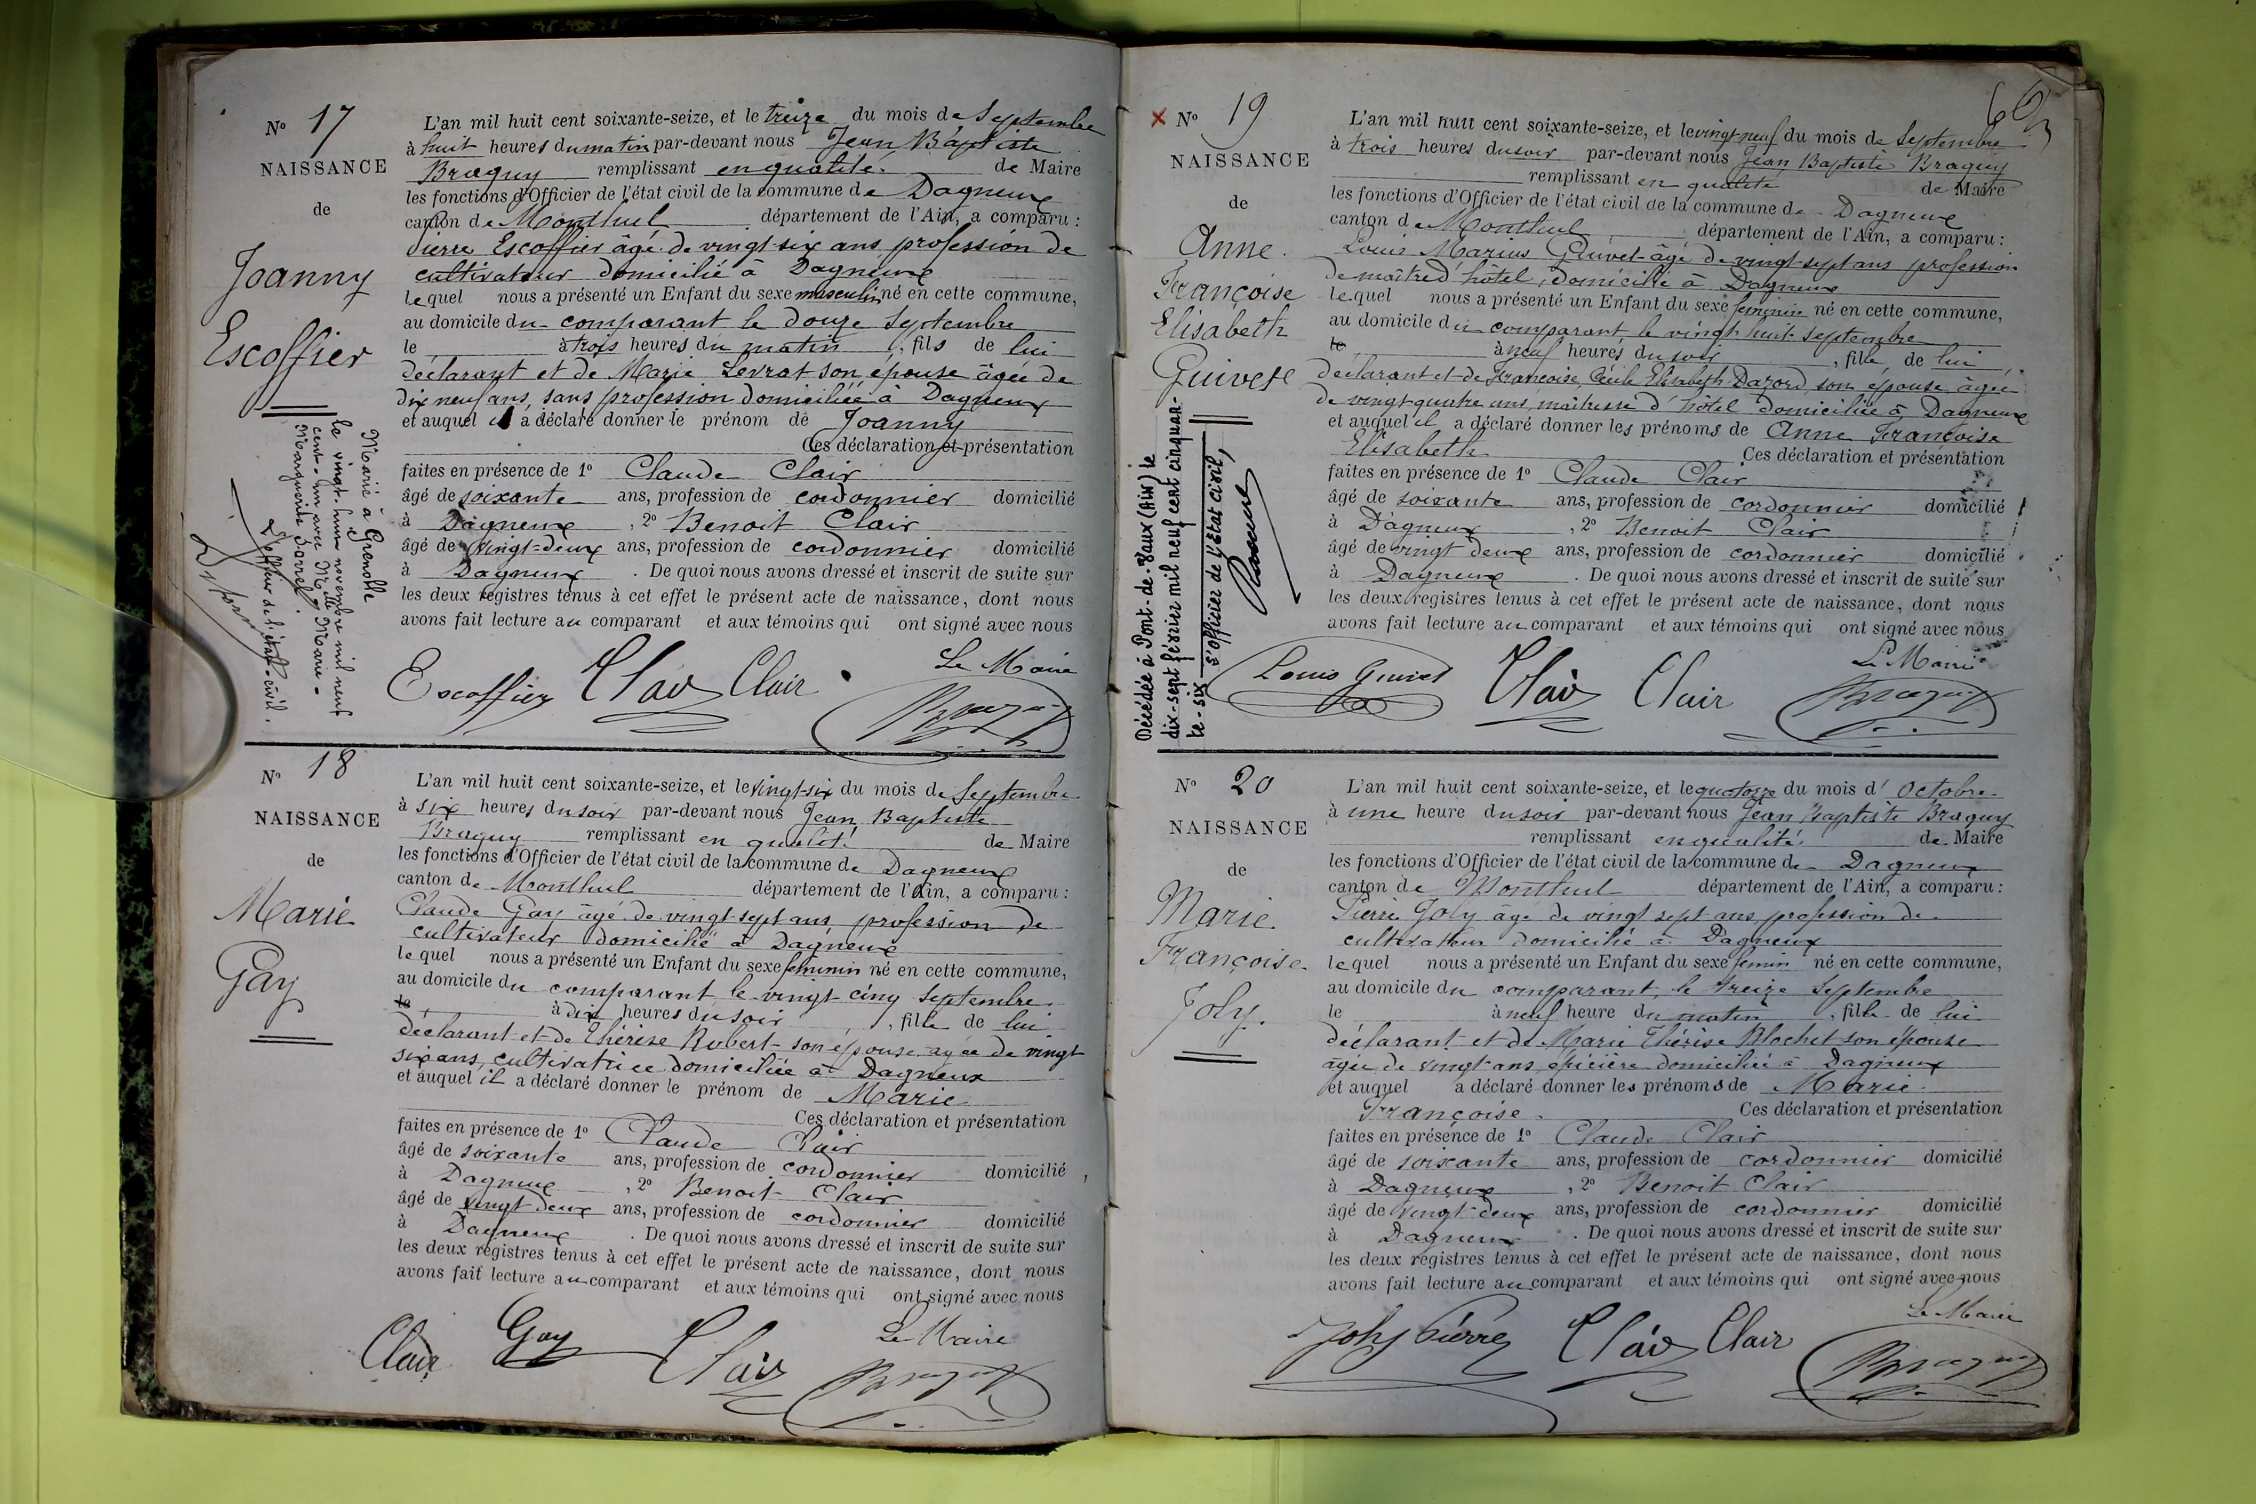 N° 17
NAISSANCE
de
Joanny
Escoffier
Marié à Grenoble
le vingt-huit novembre mil neuf
cent-un avec Mlle Marie-
Marguerite
L'officier de l'état-civil.
L'an mil huit cent soixante-seize, et le treize du mois de Septembre
à huit heures du matin par-devant nous Jean Baptiste
Braguy remplissant en qualité de Maire
les fonctions d'Officier de l'état civil de la commune de Dagneux
canton de Montluel département de l'Ain, a comparu :
Pierre Escoffier âgé de vingt-six ans profession de
cultivateur domicilié à Dagneux
lequel nous a présenté un Enfant du sexe masculin né en cette commune,
au domicile du comparant le douze Septembre
le à trois heures du matin, fils de lui
déclarant et de Marie Levrat son épouse âgée de
dix neuf ans, sans profession domiciliée à Dagneux
et auquel il a déclaré donner le prénom de Joanny
Ces déclaration et présentation
faites en présence de 1° Claude Clair
âgé de soixante ans, profession de cordonnier domicilié
à Dagneux, 2° Benoit Clair
âgé de vingt-deux ans, profession de cordonnier domicilié
à Dagneux. De quoi nous avons dressé et inscrit de suite sur
les deux registres tenus à cet effet le présent acte de naissance, dont nous
avons fait lecture au comparant et aux témoins qui ont signé avec nous
Le Maire
Escoffier Clair Clair Braguy
N° 18
NAISSANCE
de
Marie
Gay
L'an mil huit cent soixante-seize, et le vingt-six du mois de Septembre
à six heures du soir par-devant nous Jean Baptiste
Braguy remplissant en qualité de Maire
les fonctions d'Officier de l'état civil de la commune de Dagneux
canton de Montluel département de l'Ain, a comparu :
Claude Gay âgé de vingt-sept ans profession de
cultivateur domicilié à Dagneux
lequel nous a présenté un Enfant du sexe feminin né en cette commune,
au domicile du comparant le vingt-cinq septembre
le à dix heures du soir, fille de lui
déclarant et de Thérèse Robert son épouse âgée de vingt
six ans, cultivatrice domiciliée à Dagneux
et auquel il a déclaré donner le prénom de Marie
Ces déclaration et présentation
faites en présence de 1° Claude Clair
âgé de soixante ans, profession de cordonnier domicilié
à Dagneux, 2° Benoit Clair
âgé de vingt deux ans, profession de cordonnier domicilié
à Dagneux. De quoi nous avons dressé et inscrit de suite sur
les deux registres tenus à cet effet le présent acte de naissance, dont nous
avons fait lecture au comparant et aux témoins qui ont signé avec nous
Le Maire
Clair Gay Clair Braguy
N° 19
NAISSANCE
de
Anne
Françoise
Elisabeth
Guivet
Décédée à Pont-de-Vaux (Ain) le
dix-sept février mil neuf cent cinquan-
te-six
L'Officier de l'Etat civil,
L'an mil huit cent soixante-seize, et le vingt-neuf du mois de Septembre
à trois heures du soir par-devant nous Jean Baptiste Braguy
remplissant en qualité de Maire
les fonctions d'Officier de l'état civil de la commune de Dagneux
canton de Montluel département de l'Ain, a comparu :
Louis Marius Guivet âgé de vingt-sept ans profession
de maître d'hôtel, domicilié à Dagneux
lequel nous a présenté un Enfant du sexe feminin né en cette commune,
au domicile du comparant le vingt-huit septembre
le à neuf heures du soir, fille de lui
déclarant et de Françoise Cécile Elisabeth Dazord son épouse âgée
de vingt-quatre ans, maîtresse d'hôtel domiciliée à Dagneux
et auquel il a déclaré donner les prénoms de Anne Françoise
Elisabeth Ces déclaration et présentation
faites en présence de 1° Claude Clair
âgé de soixante ans, profession de cordonnier domicilié
à Dagneux, 2° Benoit Clair
âgé de vingt deux ans, profession de cordonnier domicilié
à Dagneux. De quoi nous avons dressé et inscrit de suite sur
les deux registres tenus à cet effet le présent acte de naissance, dont nous
avons fait lecture au comparant et aux témoins qui ont signé avec nous
Le Maire
Louis Guivet Clair Clair Braguy
N° 20
NAISSANCE
de
Marie
Françoise
Joly.
L'an mil huit cent soixante-seize, et le quatorze du mois d'Octobre
à une heure du soir par-devant nous Jean Baptiste Braguy
remplissant en qualité de Maire
les fonctions d'Officier de l'état civil de la commune de Dagneux
canton de Montluel département de l'Ain, a comparu :
Pierre Joly âgé de vingt sept ans profession de
cultivateur domicilié à Dagneux
lequel nous a présenté un Enfant du sexe femin né en cette commune,
au domicile du comparant, le treize Septembre
le à neuf heure du matin, fille de lui
déclarant et de Marie Thérèse Blochet son épouse
âgée de vingt ans épicière domiciliée à Dagneux
et auquel a déclaré donner les prénoms de Marie
Françoise. Ces déclaration et présentation
faites en présence de 1° Claude Clair
âgé de soixante ans, profession de cordonnier domicilié
à Dagneux, 2° Benoit Clair
âgé de vingt-deux ans, profession de cordonnier domicilié
à Dagneux. De quoi nous avons dressé et inscrit de suite sur
les deux registres tenus à cet effet le présent acte de naissance, dont nous
avons fait lecture au comparant et aux témoins qui ont signé avec nous
Le Maire
Joly Pierre Clair Clair Braguy